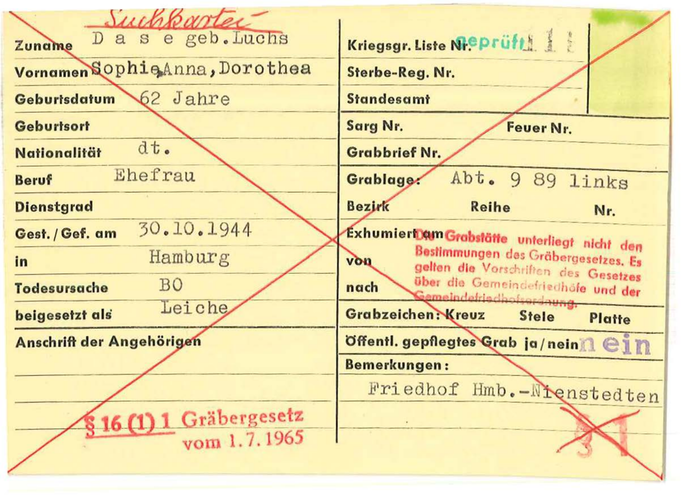 Suchkartei
Zuname D a s e geb.Luchs
Vornamen Sophie Anna, Dorothea
Geburtsdatum 62 Jahre
Geburtsort
Nationalität dt.
Beruf Ehefrau
Dienstgrad
Gest./Gef. am 30.10.1944
in Hamburg
Todesursache BO
beigesetzt als Leiche
Anschrift der Angehörigen
§ 16 (1) 1 Gräbergesetz
vom 1.7.1965
Kriegsgr. Liste Nr. geprüft
Sterbe-Reg. Nr.
Standesamt
Sarg Nr. Feuer Nr.
Grabbrief Nr.
Grablage: Abt. 9 89 links
Bezirk Reihe Nr.
Exhumiert am
von
nach
Die Grabstätte unterliegt nicht den
Bestimmungen des Gräbergesetzes. Es
gelten die Vorschriften des Gesetzes
über die Gemeindefriedhöfe und der
Gemeindefriedhofsordnung.
Grabzeichen: Kreuz Stele Platte
Öffentl. gepflegtes Grab ja/nein nein
Bemerkungen:
Friedhof Hmb.-Nienstedten
§ 1